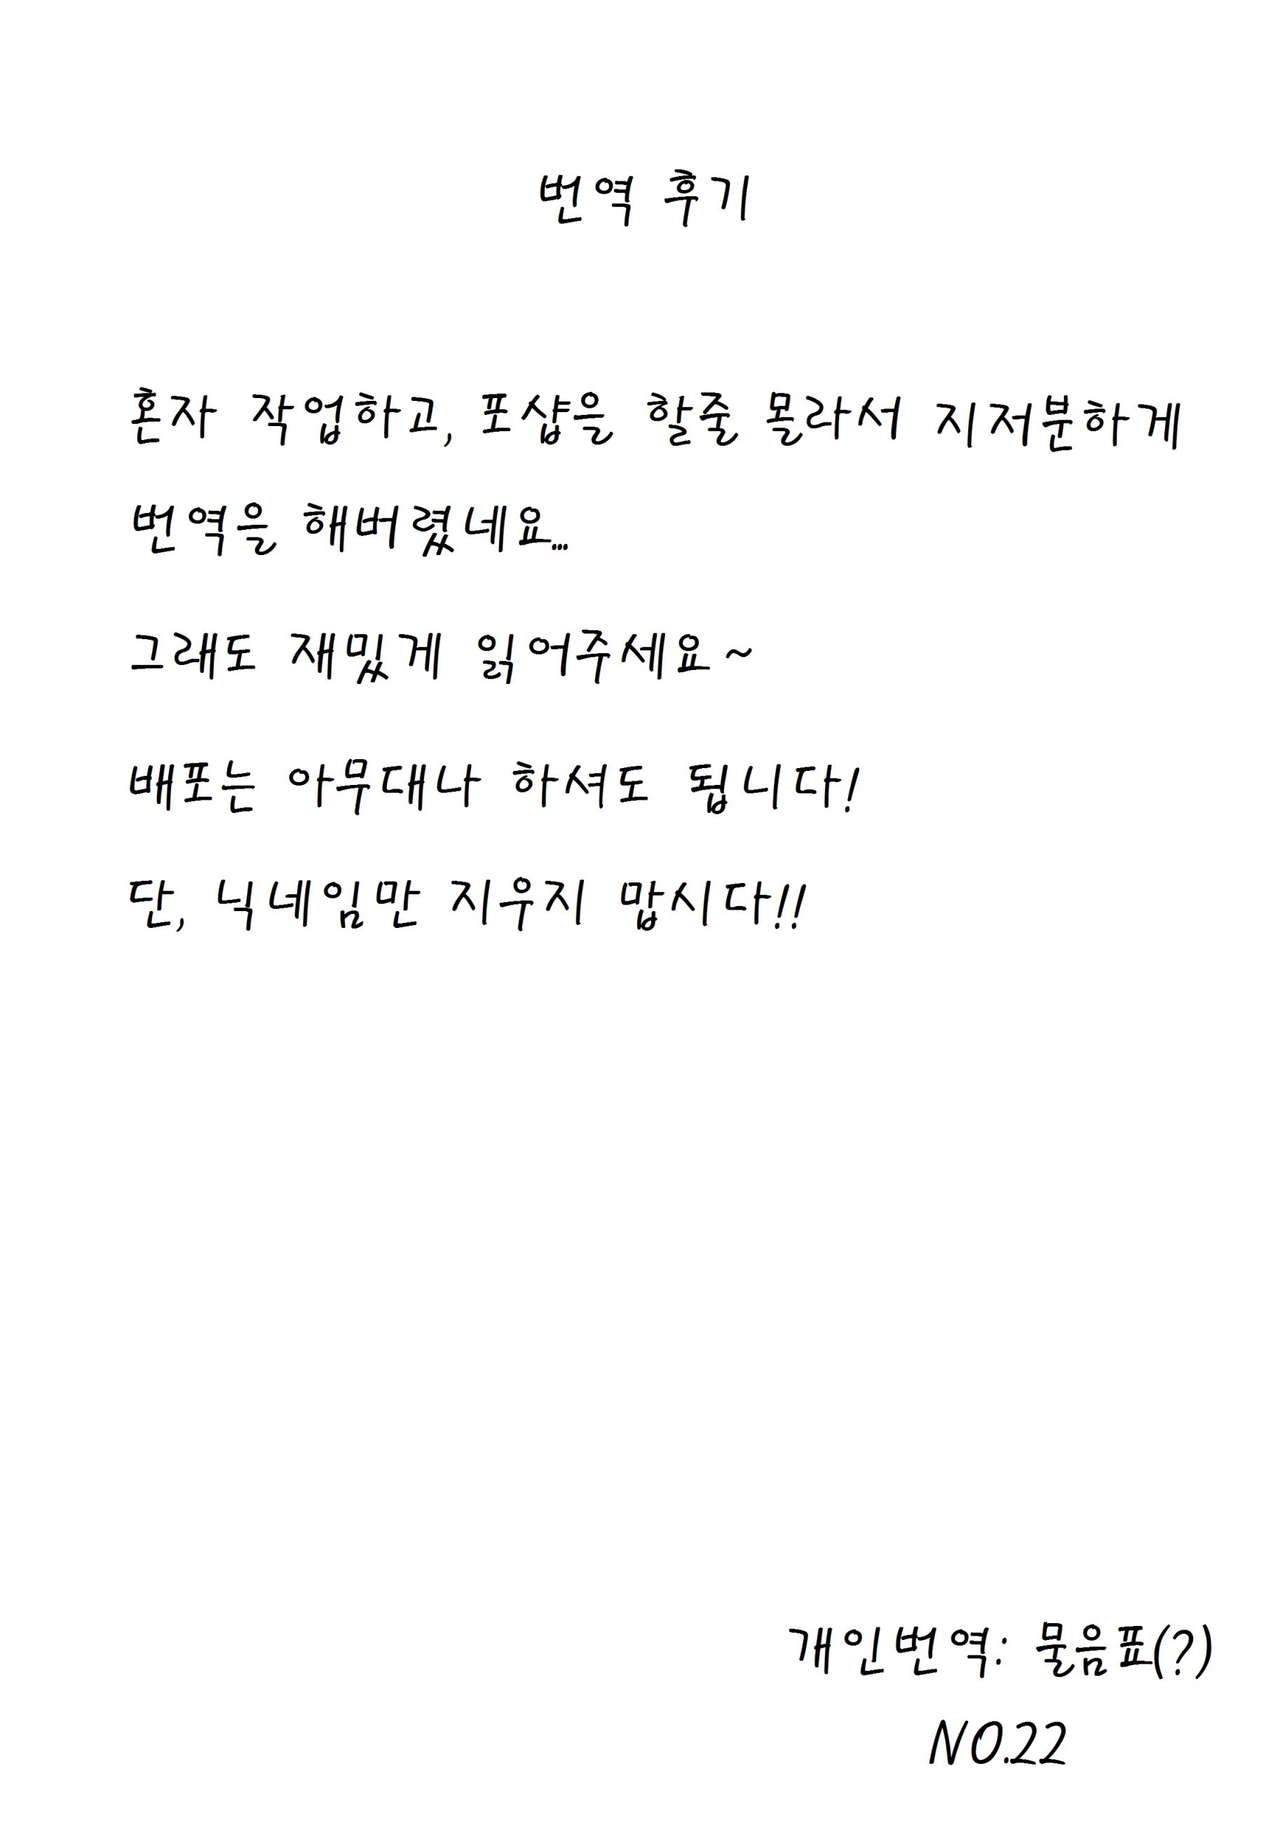 번역 후기
혼자 작업하고, 포샵을 할줄 몰라서 지저분하게
번역을 해버렸네요...
그래도 재밌게 읽어주세요~
배포는 아무대나 하셔도 됩니다!
단, 닉네임만 지우지 맙시다!!
개인번역: 물음표(?)
NO.22